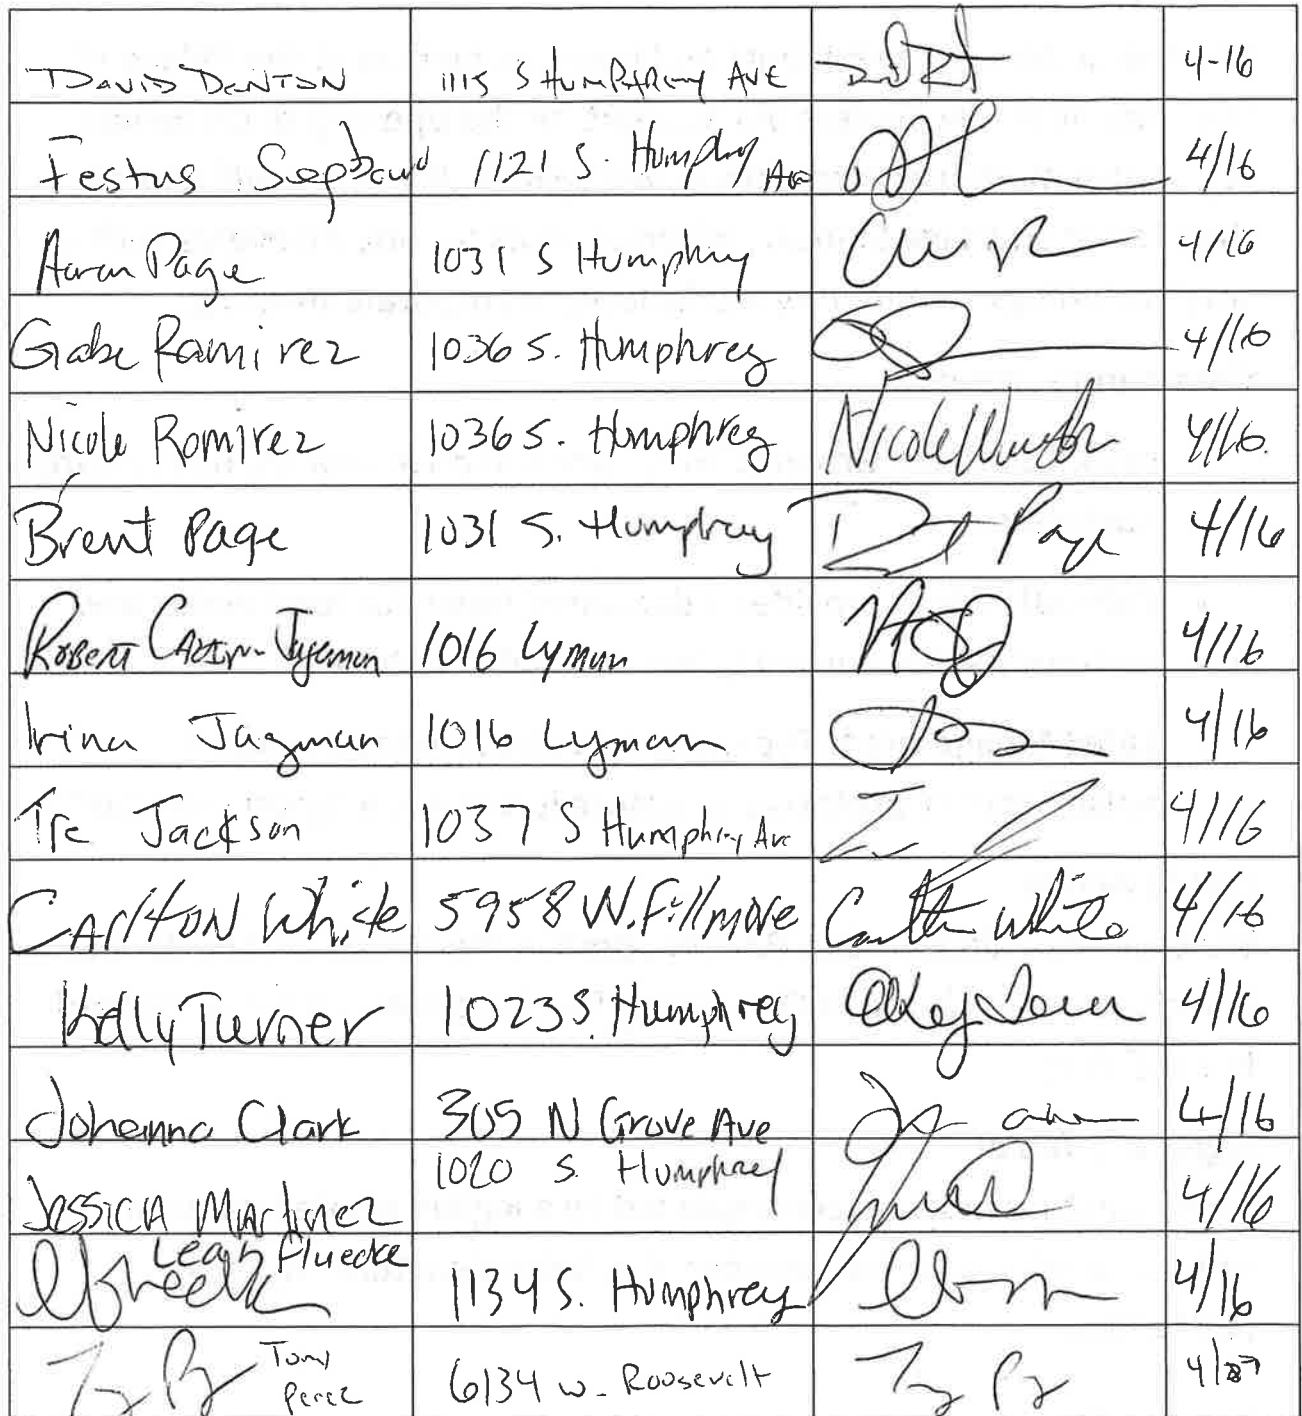 DAVID DENTON 1115 S HUMPHREY AVE 4-16
Festus 1121 S. Humphrey Ave 4/16
Aaron Page 1031 S Humphrey 4/16
Gabe Ramirez 1036 S. Humphrey 4/16
Nicole Ramirez 1036 S. Humphrey Nicole 4/16.
Brent Page 1031 S. Humphrey Page 4/16
ROBERT 1016 Lyman 4/16
Irina Jagman 1016 Lyman 4/16
Tre Jackson 1037 S Humphrey Ave 4/16
CARlTON White 5958 W. Fillmore Carlton White 4/16
Kelly Turner 1023 S. Humphrey 4/16
Johanna Clark 305 N Grove Ave 4/16
JESSICA MARtinez 1020 S. Humphrey 4/16
Leah Fluecke 1134 S. Humphrey 4/16
Tony Perez 6134 W. Roosevelt 4/27